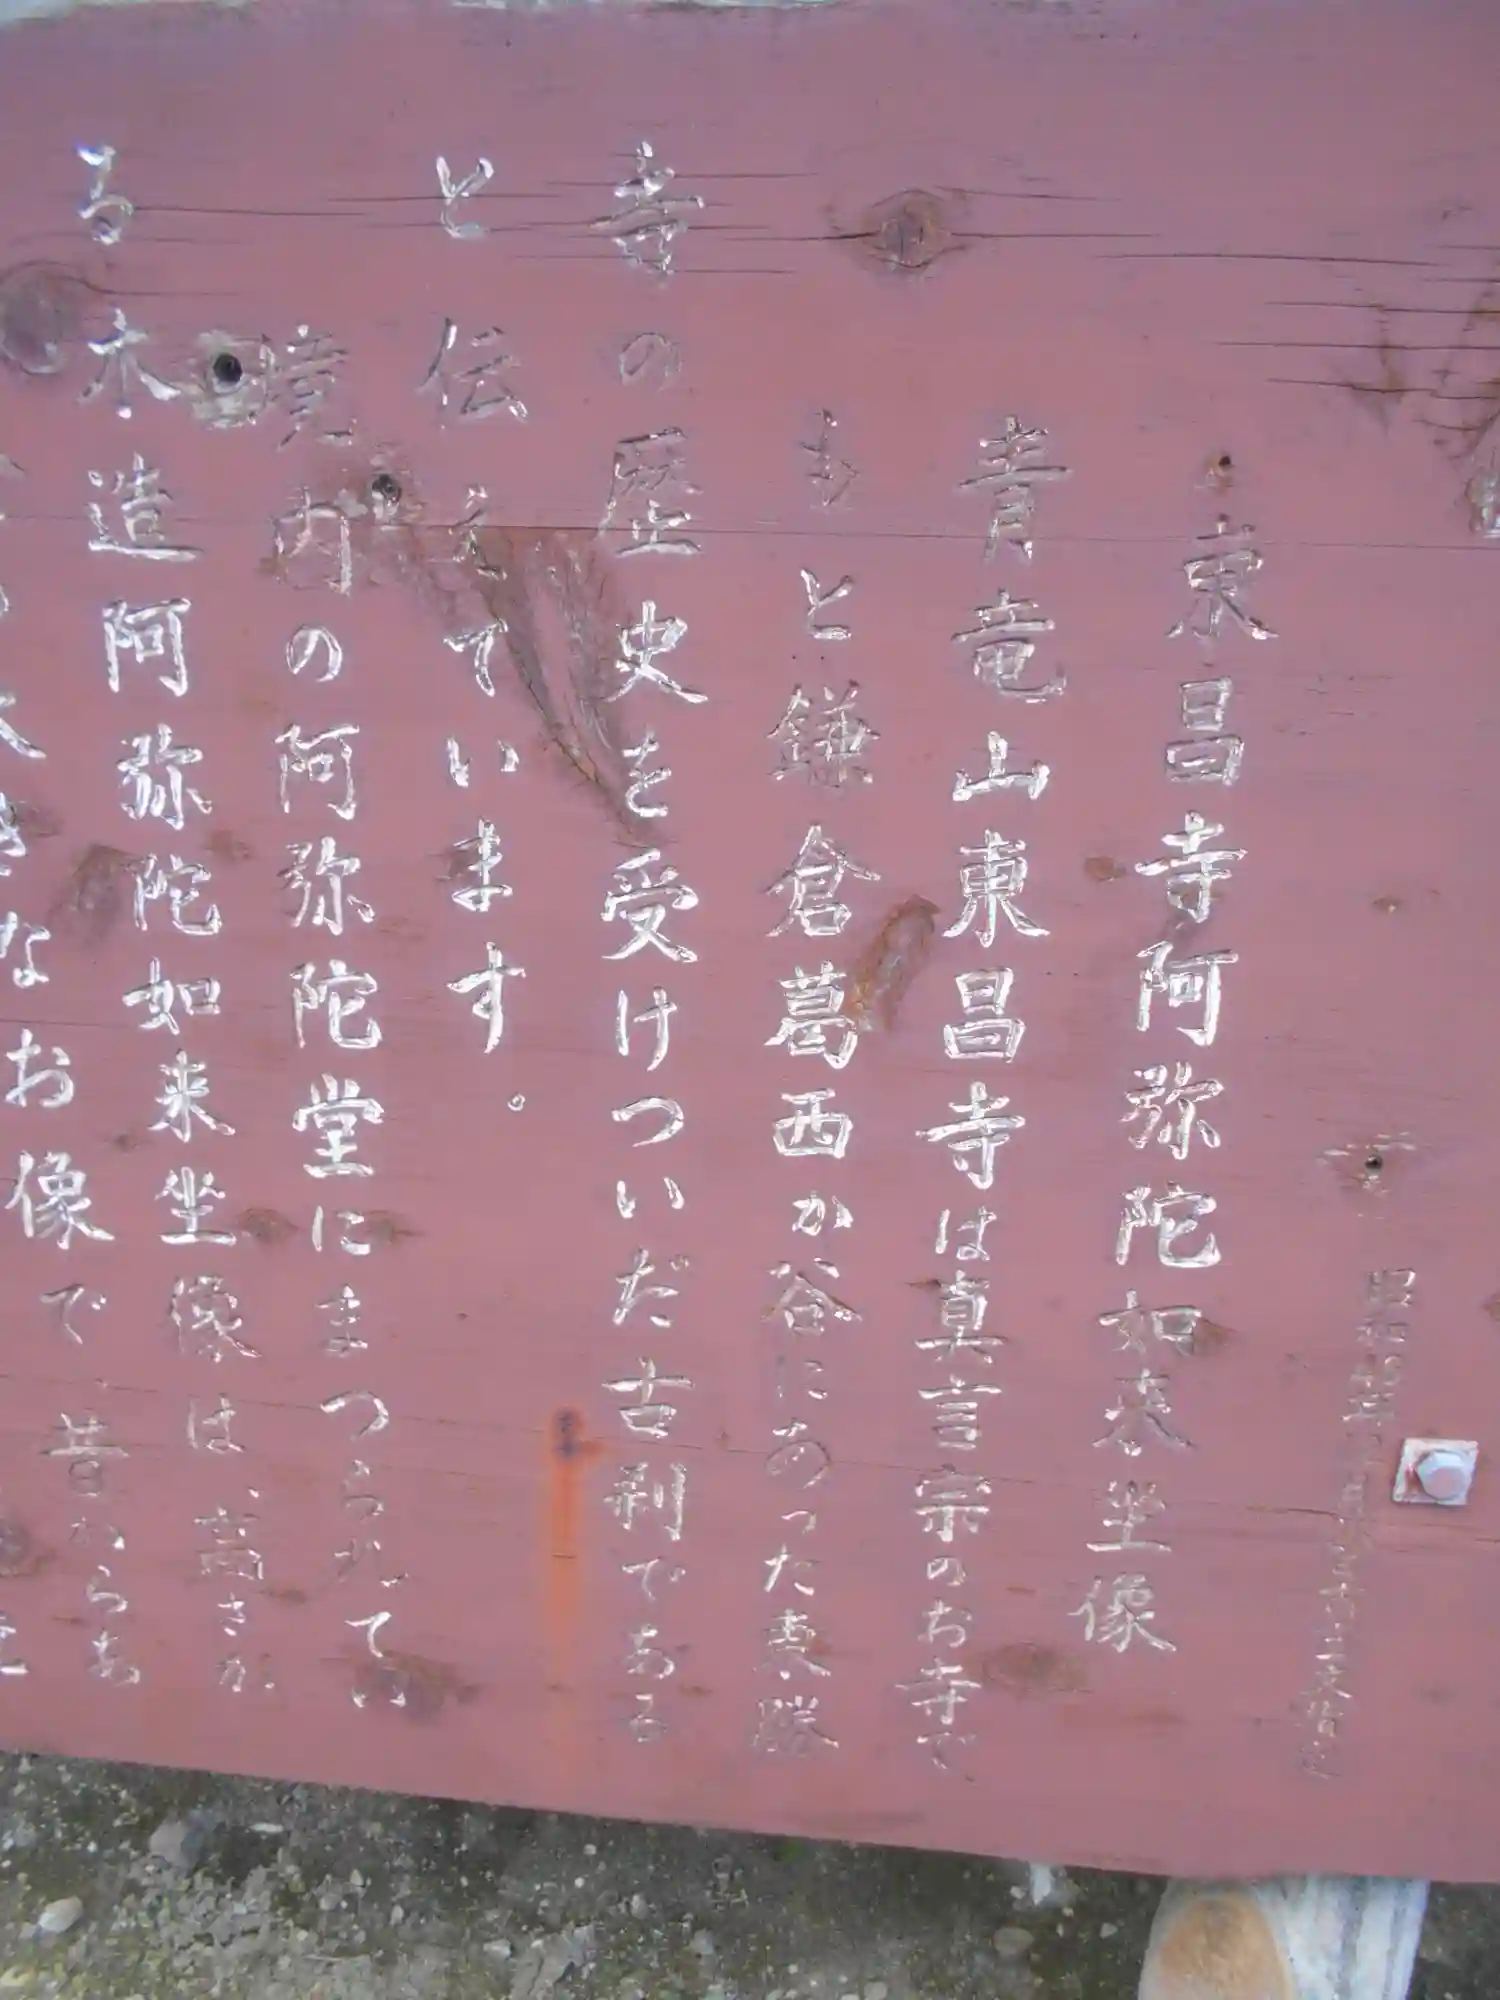 東昌寺阿弥陀如来坐像
青竜山東昌寺は真言宗のお寺で
もと鎌倉葛西か谷にあった東勝
寺の歴史を受けついだ古刹である
と伝えています。
境内の阿弥陀堂にまつられてい
る木造阿弥陀如来坐像は、高さが
大きなお像で、昔からあ